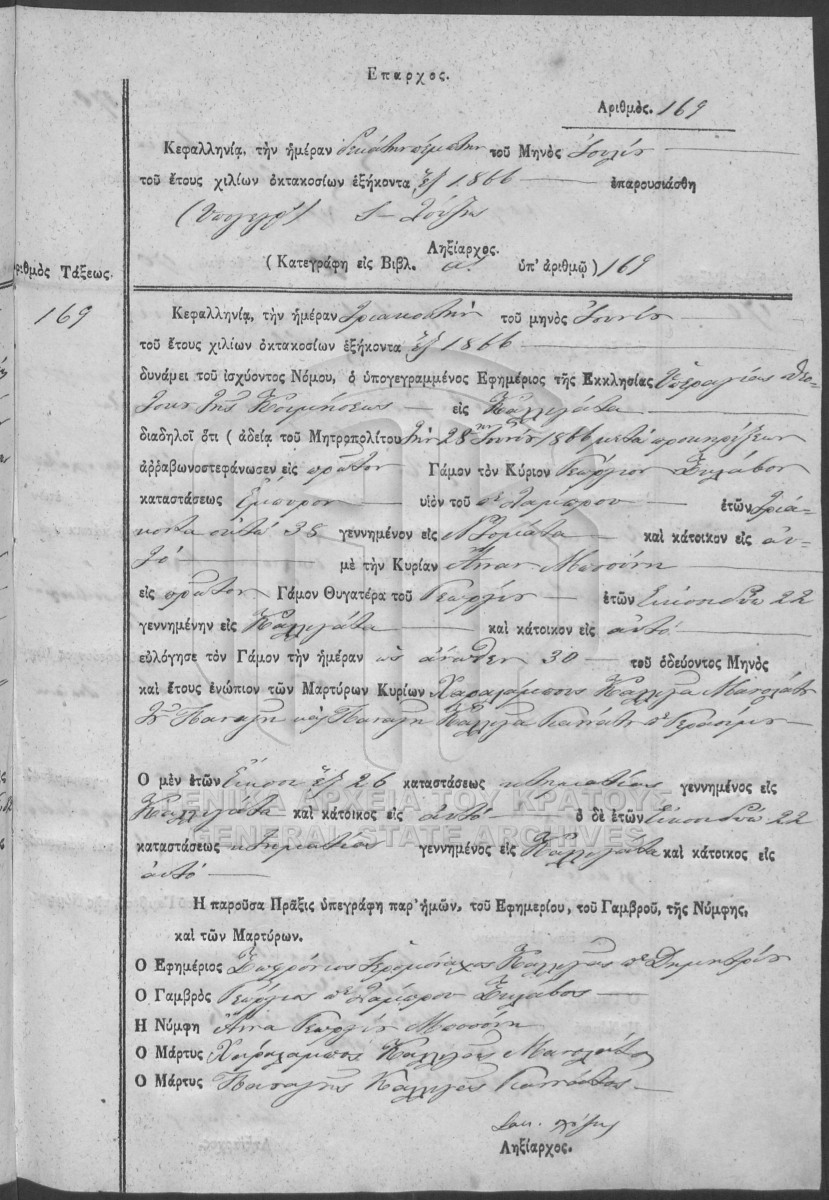 Επαρχος.
Αριθμὸς. 169
Κεφαλληνίᾳ, τὴν ἡμέραν δεκάτην πέμπτην τοῦ Μηνὸς Ἰουλίου
τοῦ ἔτους χιλίων ὀκτακοσίων ἑξήκοντα ἓξ 1866 ἐπαρουσιάσθη
Ληξίαρχος.
( Κατεγράφη εἰς Βιβλ. ὑπ' ἀριθμῷ ) 169
ριθμὸς Τάξεως.
169
Κεφαλληνίᾳ, τὴν ἡμέραν τριακοστήν τοῦ μηνὸς Ἰουνίου
τοῦ ἔτους χιλίων ὀκτακοσίων ἑξήκοντα ἓξ 1866
δυνάμει τοῦ ἰσχύοντος Νόμου, ὁ ὑπογεγραμμένος Ἐφημέριος τῆς Ἐκκλησίας Ὑπεραγίας Θεο-
τόκου τῆς Κοιμήσεως εἰς Καλλιγάτα
διαδηλοῖ ὅτι ( ἀδείᾳ τοῦ Μητροπολίτου τὴν 28 Ἰουνίου 1866 μετὰ προκηρύξεων
ἀῤῥαβωνοστεφάνωσεν εἰς πρῶτον Γάμον τὸν Κύριον Γεώργιον Συλάβον
καταστάσεως Ἔμπορον υἱὸν τοῦ Λάμπρου ἐτῶν τριά-
κοντα ὀκτώ 38 γεννημένον εἰς Δτομάτα καὶ κάτοικον εἰς αὐ-
τό μὲ τὴν Κυρίαν Ἄνναν
εἰς πρῶτον Γάμον Θυγατέρα τοῦ Γεωργίου ἐτῶν Εἰκοσιδύω 22
γεννημένην εἰς Καλλιγάτα καὶ κάτοικον εἰς αὐτό
εὐλόγησε τὸν Γάμον τὴν ἡμέραν ὡς ἄνωθεν 30 τοῦ ὁδεύοντος Μηνὸς
καὶ ἔτους ἐνώπιον τῶν Μαρτύρων Κυρίων Χαραλάμπους Καλλιγᾶ Μανολάτου
Παναγῆ καὶ Παναγῆ Καλλιγᾶ Γιαννάτου Γερασίμου
Ο μὲν ἐτῶν Εἴκοσι ἓξ 26 καταστάσεως κτηματίας γεννημένος εἰς
Καλλιγάτα καὶ κάτοικος εἰς αὐτό ὁ δὲ ἐτῶν Εἰκοσιδύω 22
καταστάσεως κτηματίας γεννημένος εἰς Καλλιγάτα καὶ κάτοικος εἰς
αὐτό
Η παροῦσα Πρᾶξις ὑπεγράφη παρ' ἡμῶν, τοῦ Ἐφημερίου, τοῦ Γαμβροῦ, τῆς Νύμφης,
καὶ τῶν Μαρτύρων.
Ο Ἐφημέριος Σωφρόνιος Ἱερομόναχος Καλλιγᾶς Δημητρίου
Ο Γαμβρὸς Γεώργιος Λάμπρου Συλάβος
Η Νύμφη Ἄννα Γεωργίου
Ο Μάρτυς Χαράλαμπος Καλλιγᾶς Μανολάτος
Ο Μάρτυς Παναγῆς Καλλιγᾶς Γιαννάτος
Ληξίαρχος.
ΓΕΝΙΚΑ ΑΡΧΕΙΑ ΤΟΥ ΚΡΑΤΟΥΣ
GENERAL STATE ARCHIVES